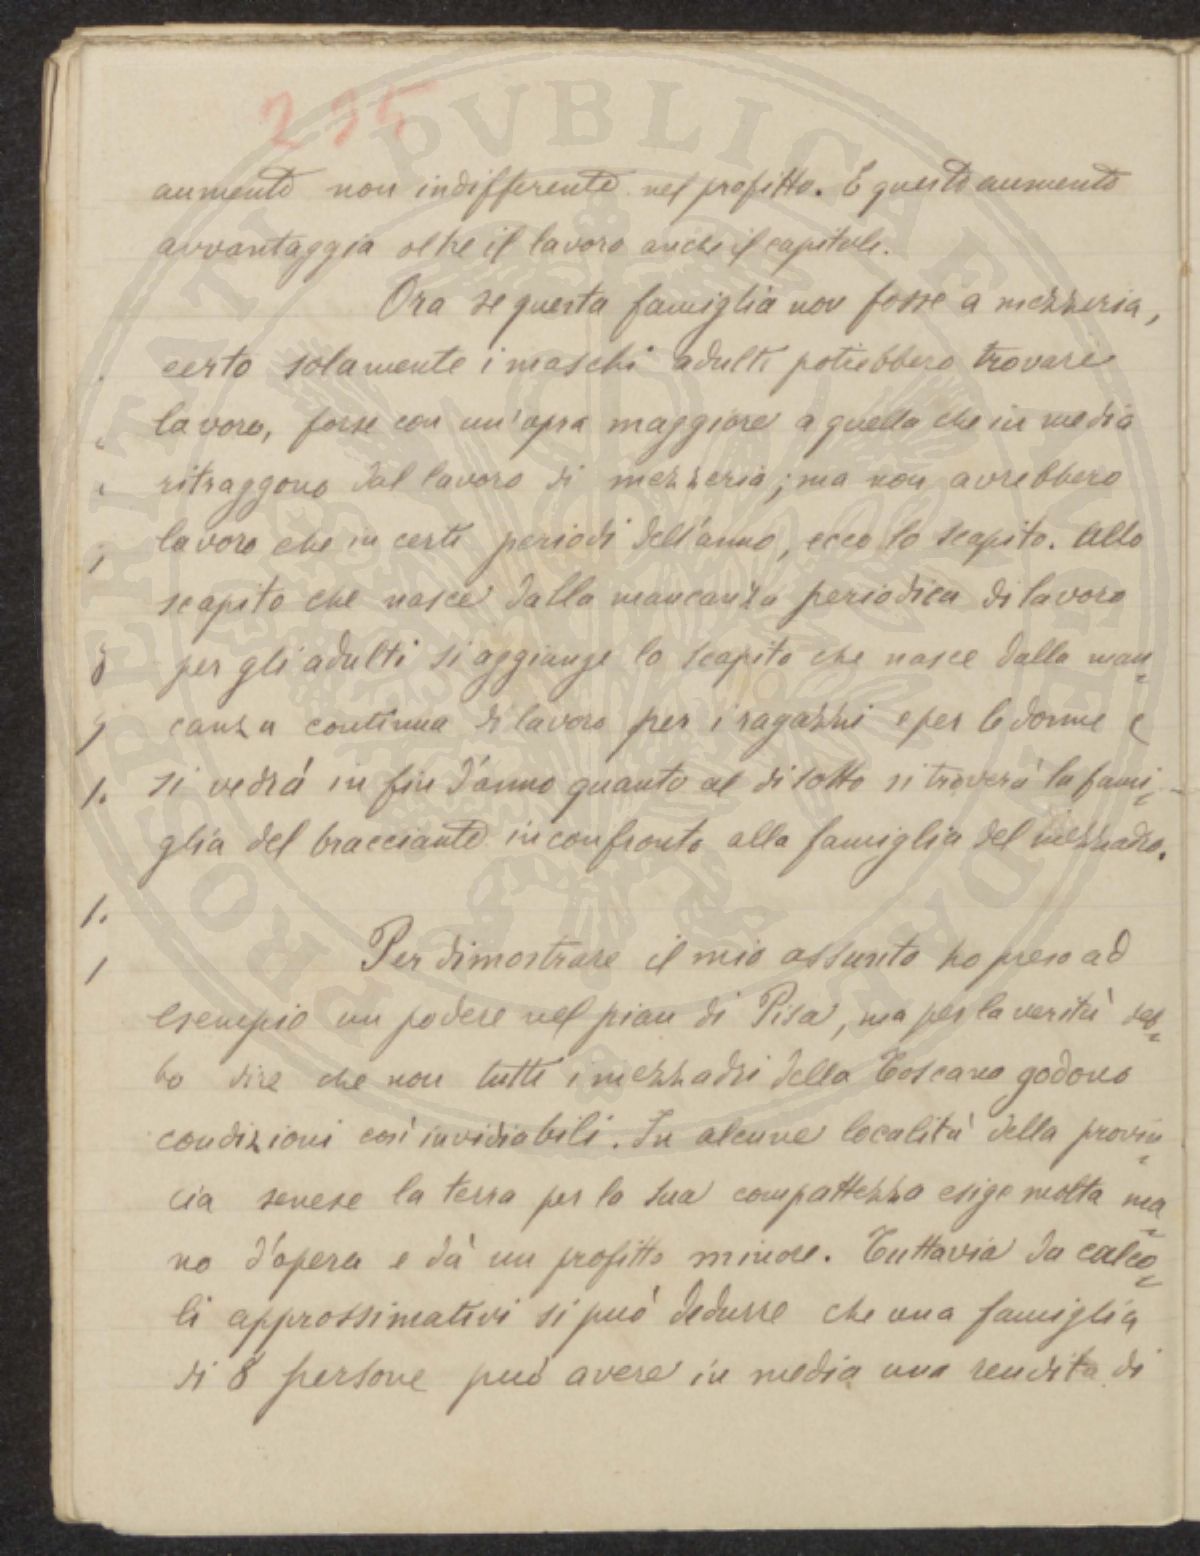 235
aumento non indifferente nel profitto. E questo aumento
avvantaggia oltre il lavoro anche il capitale.
Ora se questa famiglia non fosse a mezzeria,
certo solamente i maschi adulti potrebbero trovare
lavoro, forse con un'opra maggiore a quella che in media
ritraggono dal lavoro di mezzeria; ma non avrebbero
lavoro che in certi periodi dell'anno, ecco lo scapito. Allo
scapito che nasce dalla mancanza periodica di lavoro
per gli adulti si aggiunge lo scapito che nasce dalla man
canza continua di lavoro per i ragazzi e per le donne e
si vedrà in fin d'anno quanto al disotto si troverà la fami
glia del bracciante in confronto alla famiglia del mezzadro.
Per dimostrare il mio assunto ho preso ad
esempio un podere nel pian di Pisa, ma per la verità deb
bo dire che non tutti i mezzadri della Toscana godono
condizioni così invidiabili. In alcune località della provin
cia senese la terra per la sua compattezza esige molta ma
no d'opera e dà un profitto minore. Tuttavia da calco
li approssimativi si può dedurre che una famiglia
di 8 persone può avere in media una rendita di
PROSPERITATI PVBLICAE AVGENDAE